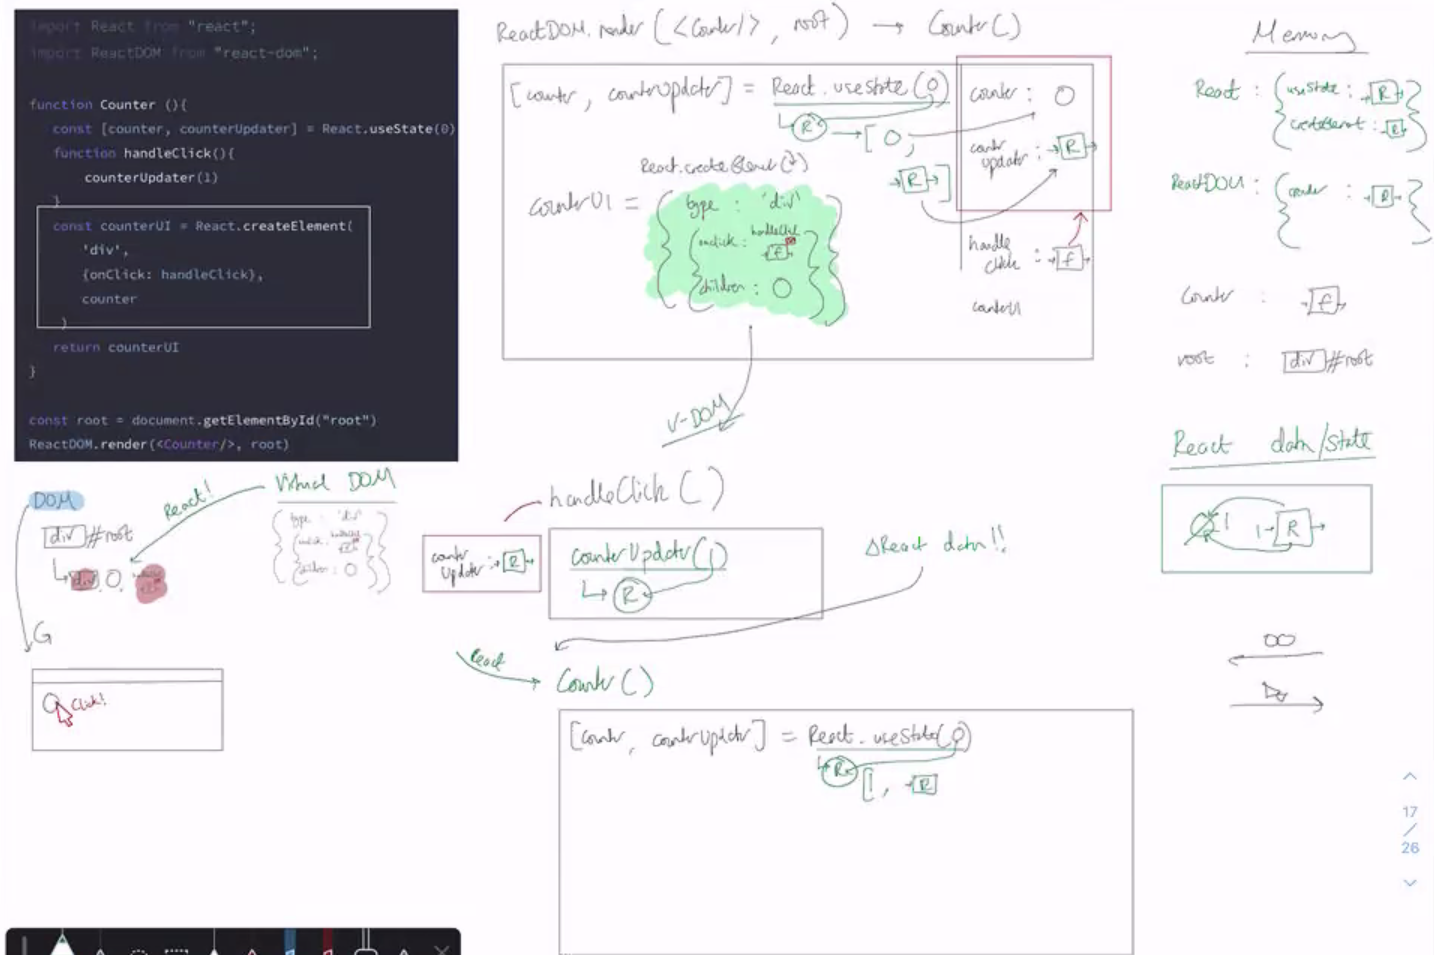 import React from "react";
import ReactDOM from "react-dom";
function Counter (){
const [counter, counterUpdater] = React.useState(0)
function handleClick(){
counterUpdater(1)
}
const counterUI = React.createElement(
'div',
{onClick: handleClick},
counter
)
return counterUI
}
const root = document.getElementById("root")
ReactDOM.render(<Counter/>, root)
ReactDOM.render(<Counter/>, root) → Counter()
[counter, counterUpdater] = React.useState(0)
R → [0,
R]
React.createElement()
counterUI =
{type : 'div'
{onclick : handleClick
f
children : 0}}
counter : 0
counter updater : R
handle click : f
counterUI
V-DOM
Memory
React : {useState : R
createElement : R}
ReactDOM : {render : R}
Counter : f
root : div #root
React data/state
0 1 R
DOM
div #root
div, 0,
React!
Virtual DOM
{type : 'div'
children : 0}
G
Click!
handleClick()
counter updater : R
counterUpdater(1)
R
ΔReact data!!
React
Counter()
[counter, counterUpdater] = React.useState(0)
R [1, R
∞
17
/
26